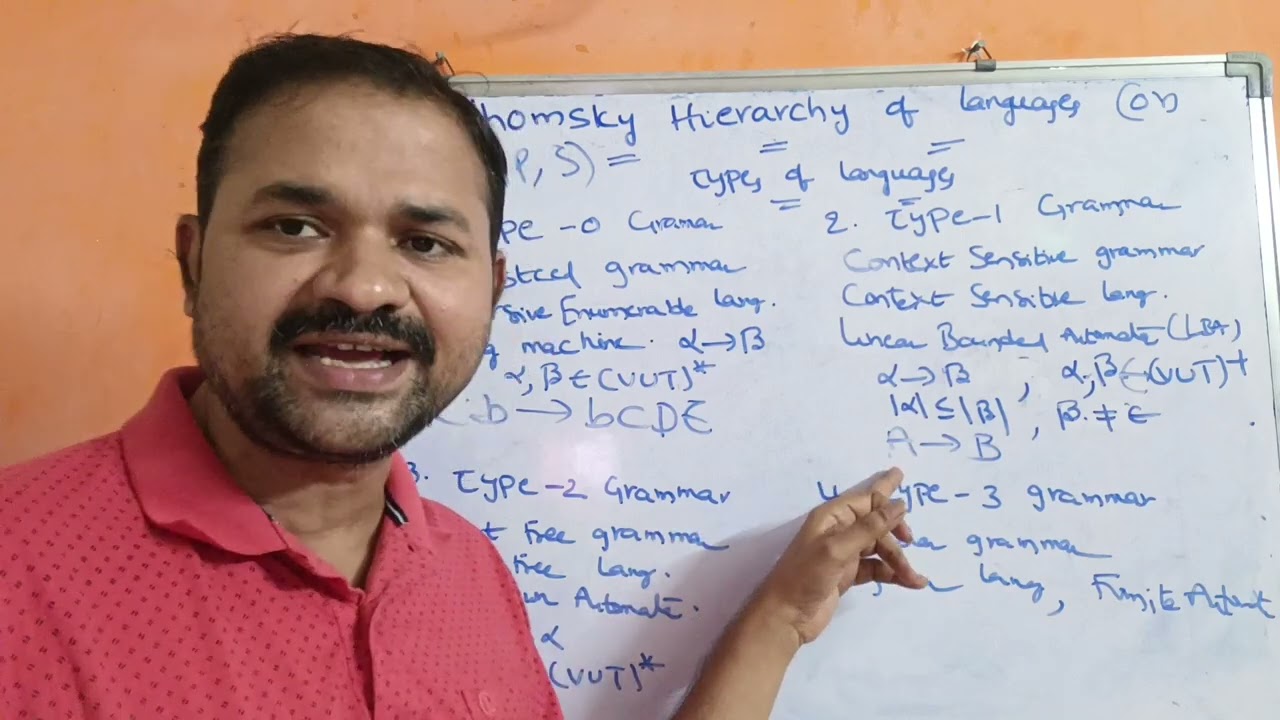 homsky Hierarchy of languages (or)
P, S) =
types of languages
pe -0 Gramar
sted grammar
sive Enumerable lang.
g machine. α→β
α, β ∈ (VUT)*
b → bCDE
2. Type-1 Grammar
Context Sensitive grammar
Context Sensible lang.
Linear Bounded Automate (LBA)
α→β , α,β ∈ (VUT)+
|α| ≤ |β| , β ≠ ε
A → B
3. Type-2 Grammar
t Free grammar
Free lang.
wn Automate.
α
(VUT)*
4. Type-3 grammar
lar grammar
lang, Finite Automat